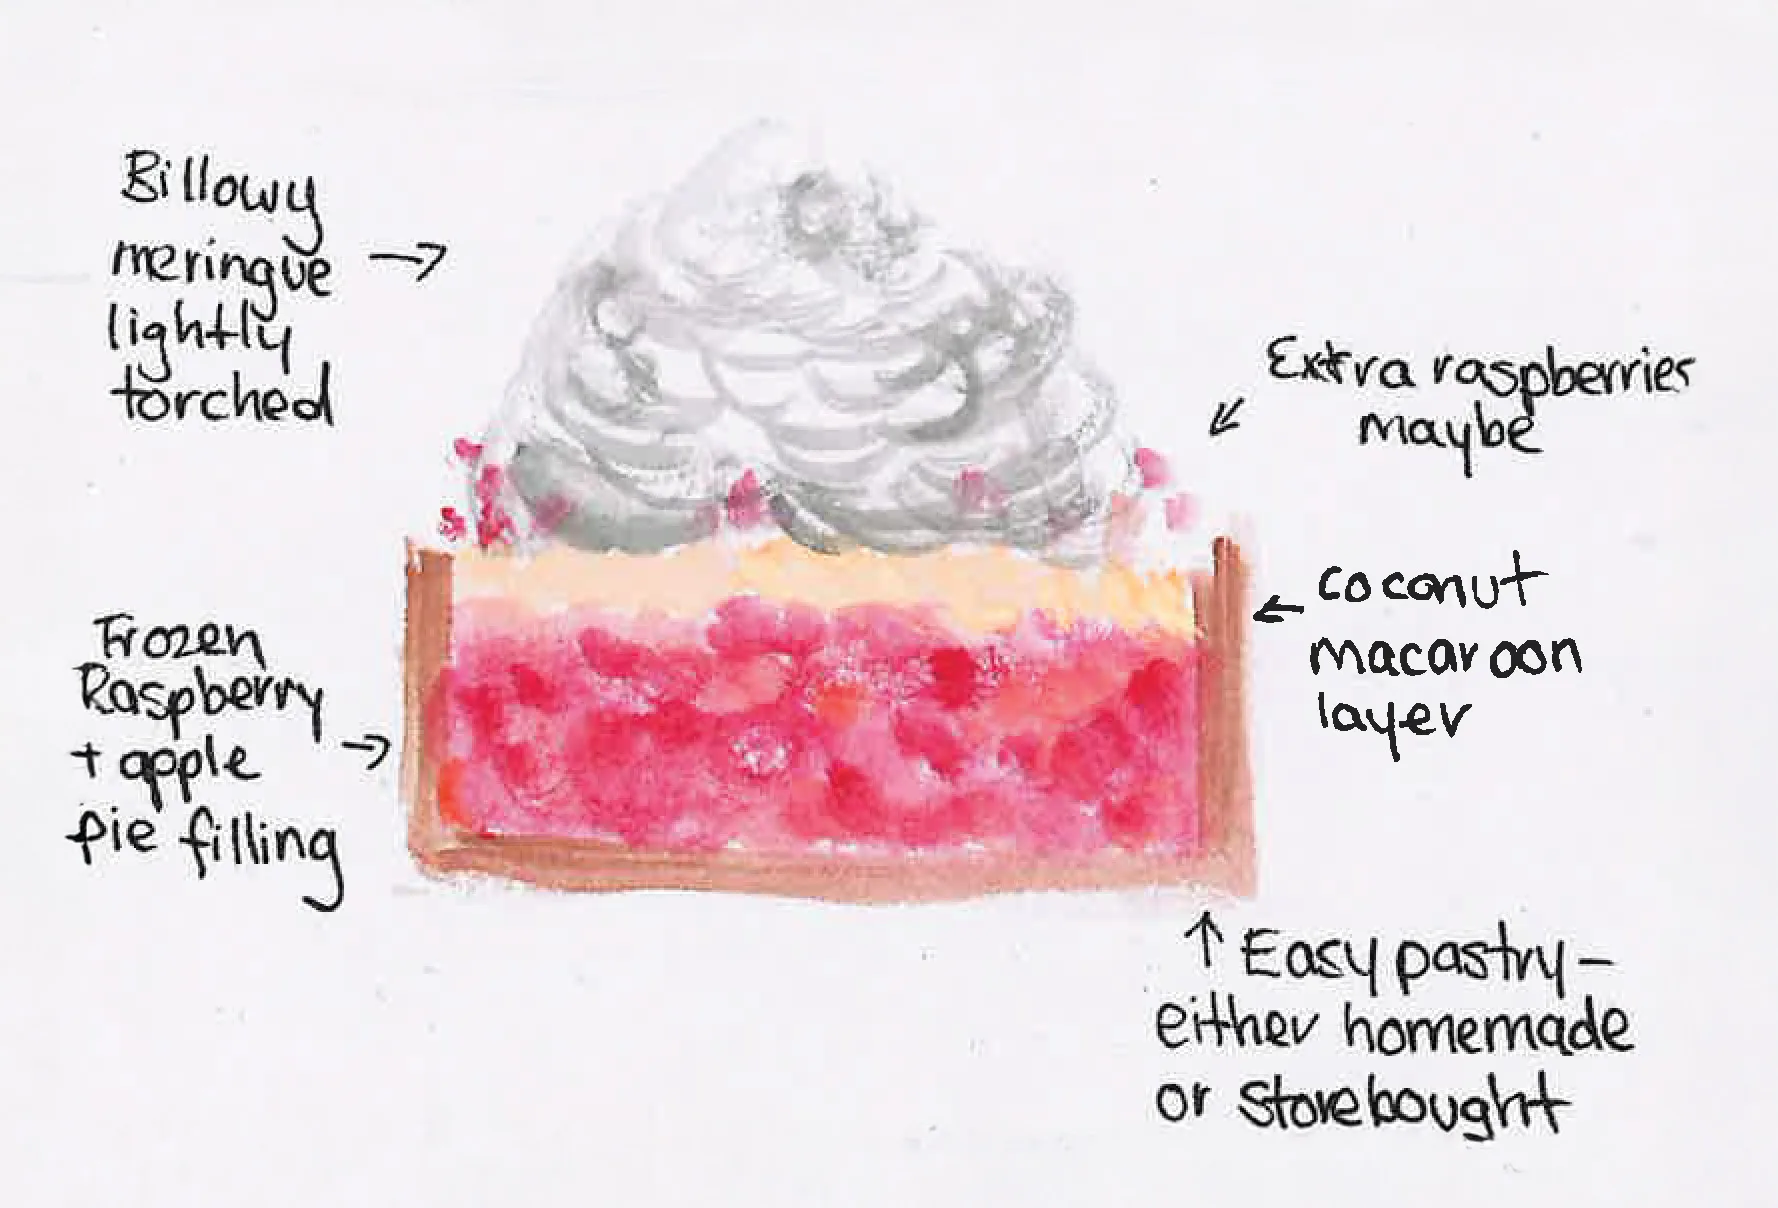 Billowy
meringue
lightly
torched
Extra raspberries
maybe
Frozen
Raspberry
+ apple
pie filling
coconut
macaroon
layer
Easy pastry-
either homemade
or storebought